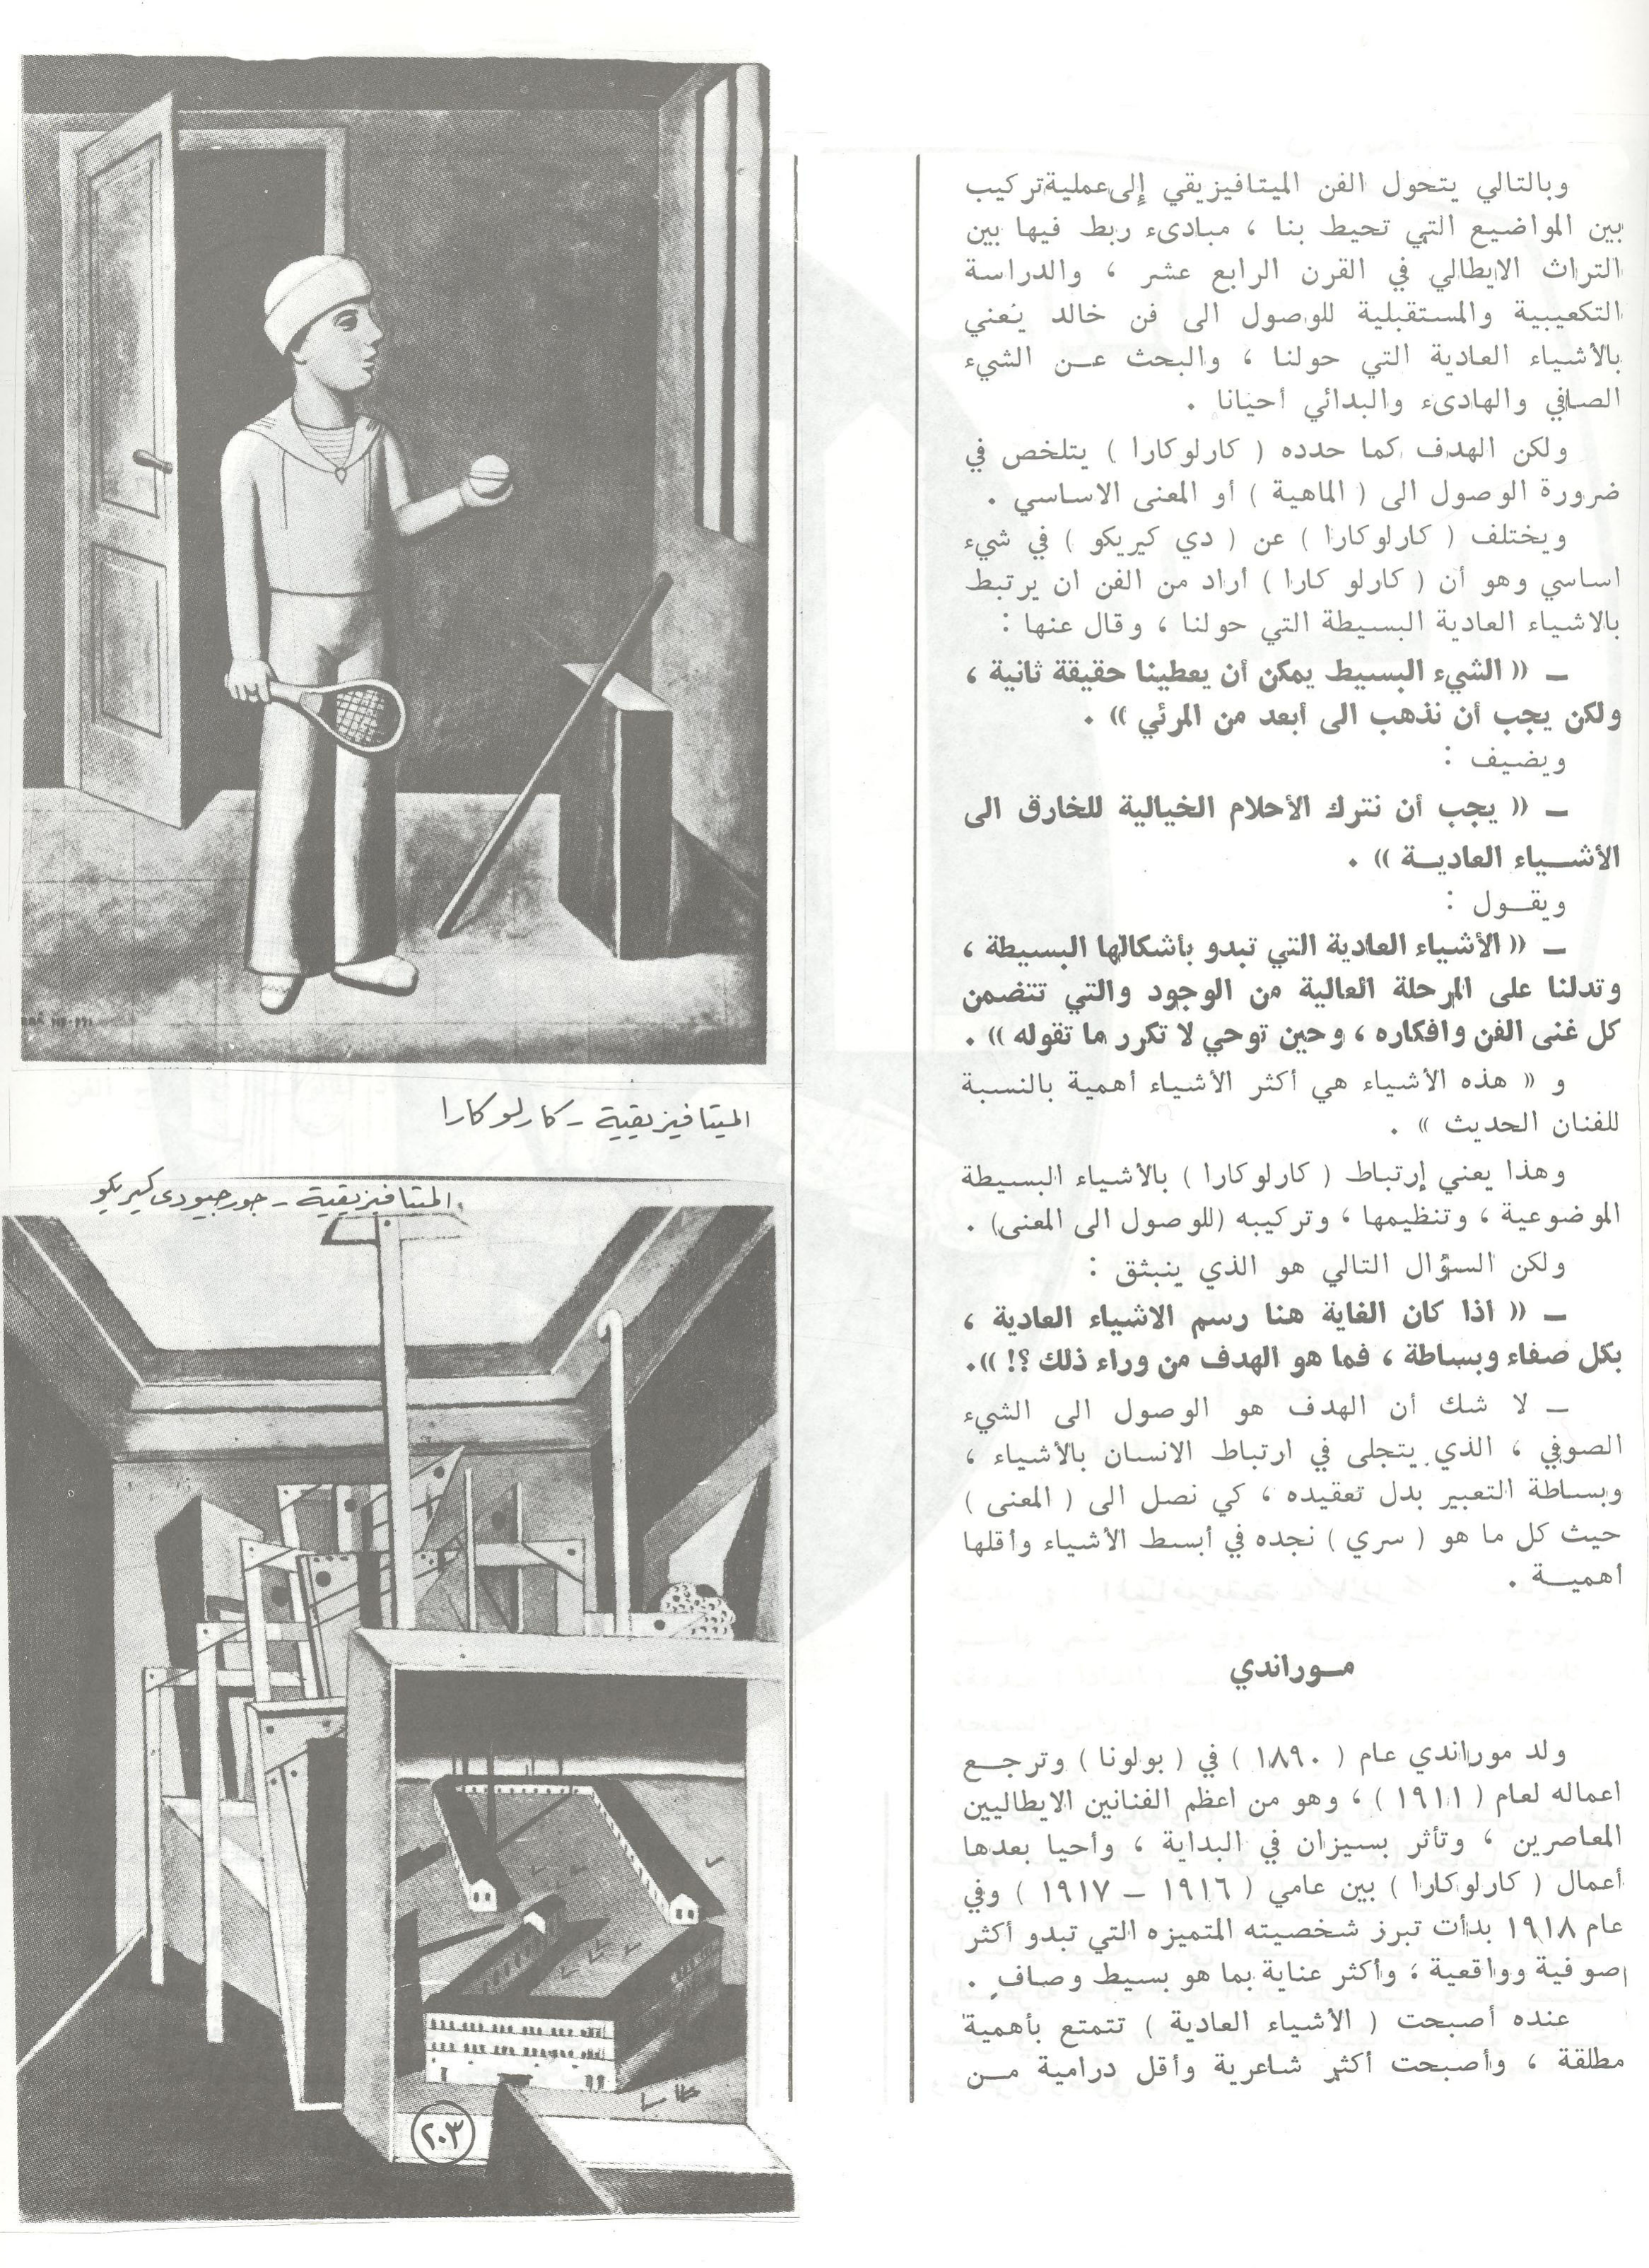 وبالتالي يتحول الفن الميتافيزيقي إلى عملية تركيب
بين المواضيع التي تحيط بنا ، مبادىء ربط فيها بين
التراث الايطالي في القرن الرابع عشر ، والدراسة
التكعيبية والمستقبلية للوصول الى فن خالد يُعني
بالأشياء العادية التي حولنا ، والبحث عن الشيء
الصافي والهادىء والبدائي أحيانا .
ولكن الهدف كما حدده ( كارلوكارا ) يتلخص في
ضرورة الوصول الى ( الماهية ) أو المعنى الاساسي .
ويختلف ( كارلوكارا ) عن ( دي كيريكو ) في شيء
اساسي وهو أن ( كارلو كارا ) أراد من الفن ان يرتبط
بالاشياء العادية البسيطة التي حولنا ، وقال عنها :
ـ « الشيء البسيط يمكن أن يعطينا حقيقة ثانية ،
ولكن يجب أن نذهب الى أبعد من المرئي » .
ويضيف :
ـ « يجب أن نترك الأحلام الخيالية للخارق الى
الأشياء العادية » .
ويقول :
ـ « الأشياء العادية التي تبدو بأشكالها البسيطة ،
وتدلنا على المرحلة العالية من الوجود والتي تتضمن
كل غنى الفن وافكاره ، وحين توحي لا تكرر ما تقوله » .
و « هذه الأشياء هي أكثر الأشياء أهمية بالنسبة
للفنان الحديث » .
وهذا يعني إرتباط ( كارلوكارا ) بالأشياء البسيطة
الموضوعية ، وتنظيمها ، وتركيبه (للوصول الى المعنى) .
ولكن السؤال التالي هو الذي ينبثق :
ـ « اذا كان الغاية هنا رسم الاشياء العادية ،
بكل صفاء وبساطة ، فما هو الهدف من وراء ذلك ؟! ».
ـ لا شك أن الهدف هو الوصول الى الشيء
الصوفي ، الذي يتجلى في ارتباط الانسان بالأشياء ،
وبساطة التعبير بدل تعقيده ، كي نصل الى ( المعنى )
حيث كل ما هو ( سري ) نجده في أبسط الأشياء وأقلها
أهمية .
مـوراندي
ولد موراندي عام ( ١٨٩٠ ) في ( بولونا ) وترجع
اعماله لعام ( ١٩١١ ) ، وهو من اعظم الفنانين الايطاليين
المعاصرين ، وتأثر بسيزان في البداية ، وأحيا بعدها
أعمال ( كارلوكارا ) بين عامي ( ١٩١٦ ـ ١٩١٧ ) وفي
عام ١٩١٨ بدأت تبرز شخصيته المتميزه التي تبدو أكثر
صوفية وواقعية ؛ وأكثر عناية بما هو بسيط وصافٍ .
عنده أصبحت ( الأشياء العادية ) تتمتع بأهمية
مطلقة ، وأصبحت أكثر شاعرية وأقل درامية من
الميتافيزيقية - كارلوكارا
الميتافيزيقية - جورجيودي كيريكو
٢٠٣